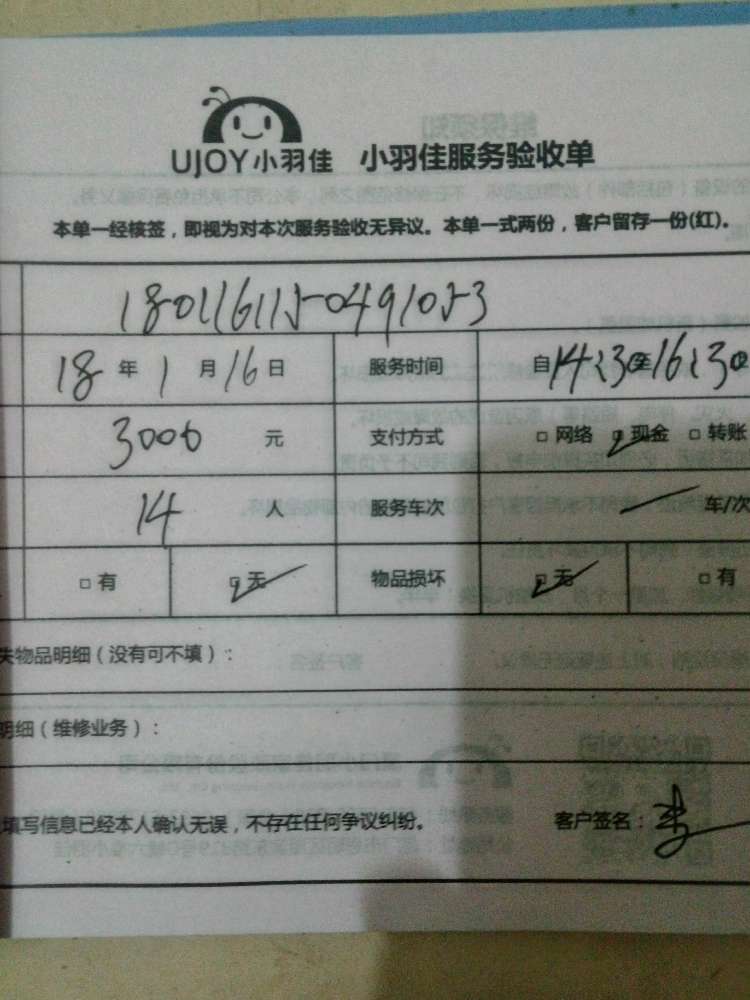 UJOY小羽佳 小羽佳服务验收单
本单一经核签，即视为对本次服务验收无异议。本单一式两份，客户留存一份(红)。
1801161150491053
18 年 1 月 16 日 服务时间 自14:30至16:30
3000 元 支付方式 □ 网络 □ 现金 □ 转账
14 人 服务车次 车/次
□ 有 □ 无 物品损坏 □ 无 □ 有
失物品明细（没有可不填）：
明细（维修业务）：
填写信息已经本人确认无误，不存在任何争议纠纷。 客户签名：